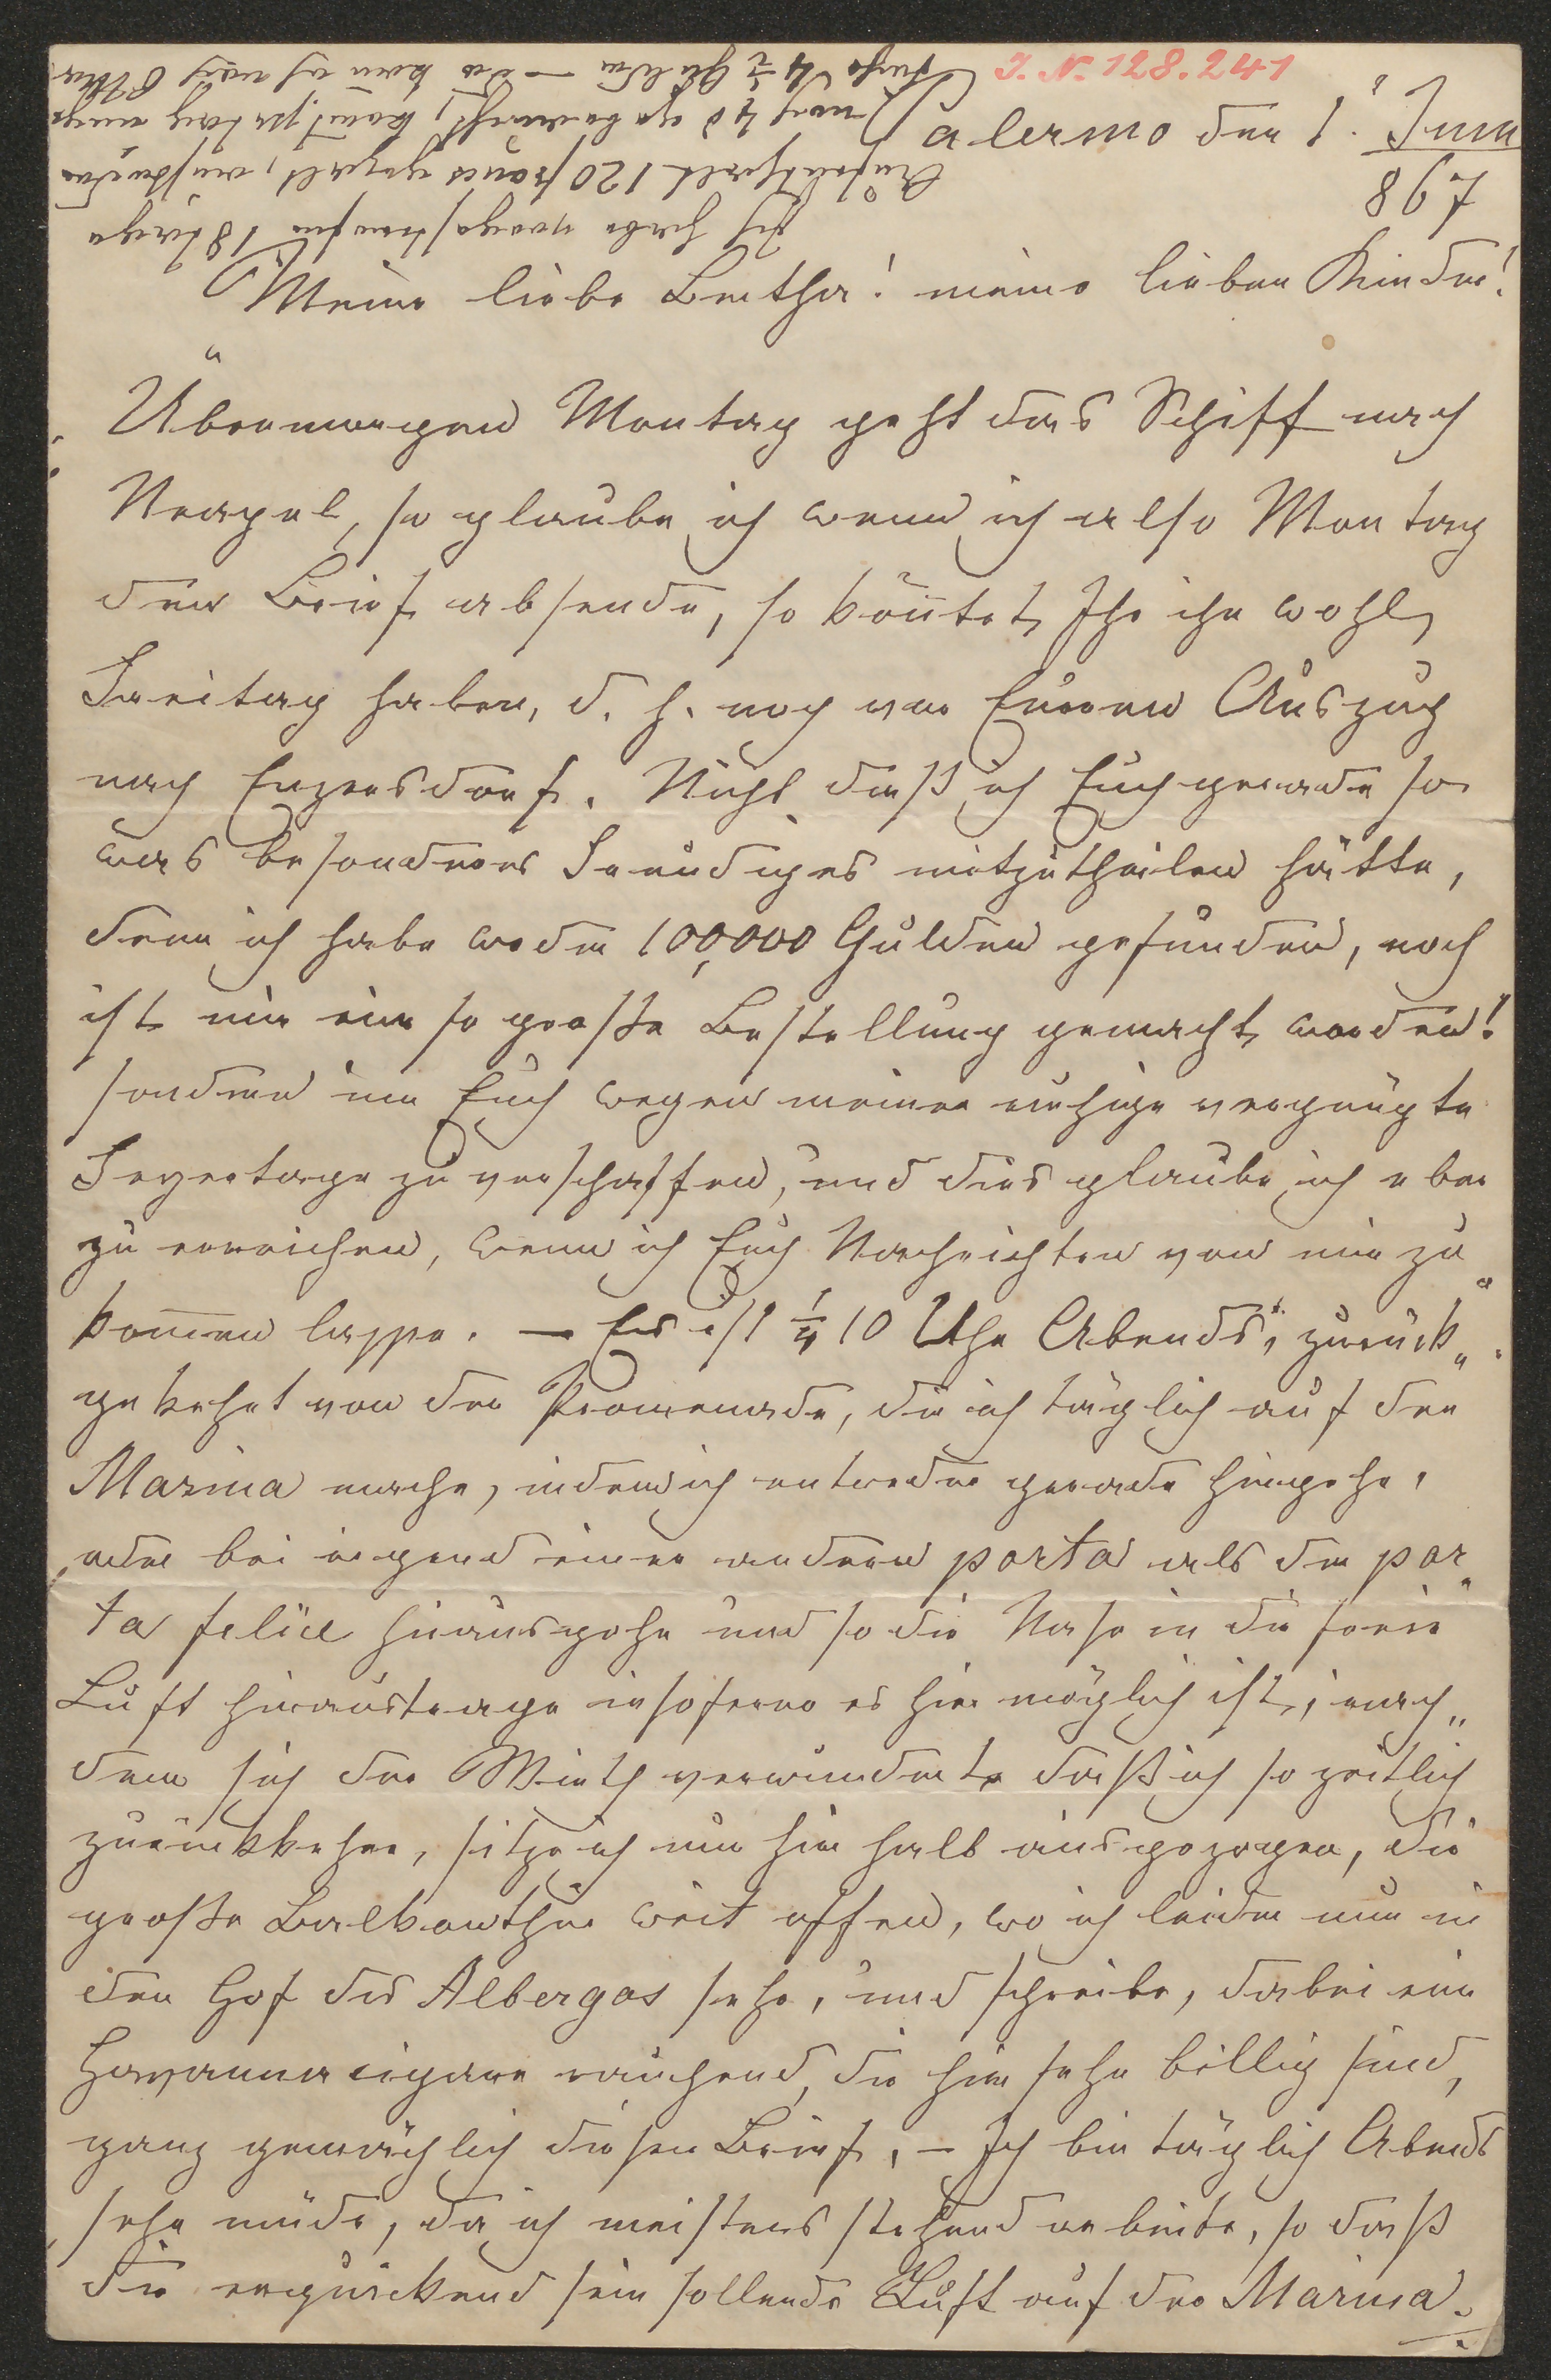 J. N. 128.241
Palermo den 1. Juni
798
Ich habe vorgestern 18 tägige
Aufenthalt 120 francs gezahlt, außerdem
noch 40 gebraucht, kommt per Tag
4 ½ Gulden — da kann ich noch
Meine liebe Bertha! meine lieben Kinder!
Übermorgen Montag geht das Schiff nach
Neapel, so glaube ich wenn ich also Montag
den Brief absende, so könntet Ihr ihn wohl
Freitag haben, d. h. noch vor Eurem Auszug
nach Enzersdorf. Nicht daß ich Euch gerade so
was besonderes Freudiges mitzutheilen hätte,
denn ich habe weder 100,000 Gulden gefunden, noch
ist mir eine so große Bestellung gemacht worden!
sondern um Euch wegen meiner ruhige vergnügte
Feyertage zu verschaffen, und dies glaube ich eben
zu erreichen, wenn ich Euch Nachrichten von mir zu„
kommen lasse. — Es ist ¼ 10 Uhr Abends, zurück„
gekehrt von der Promenade, die ich täglich auf der
Marina mache, indem ich entweder gerade hingehe,
oder bei irgend einer andern porta als der por„
ta felice hinausgehe und so die Nase in die freie
Luft hinaustrage insoferne es hier möglich ist, nach„
dem sich der Wirth verwunderte daß ich so zeitlich
zurückkehre, sitze ich nun hier halb ausgezogen, die
große Balkonthür weit offen, wo ich leider nur in
den Hof des Albergos sehe, und schreibe, dabei eine
Havannacigare rauchend, die hier sehr billig sind,
ganz gemächlich diesen Brief, — Ich bin täglich Abends
sehr müde, da ich meistens stehend arbeite, so daß
die erquickend sein sollende Luft auf der Marina